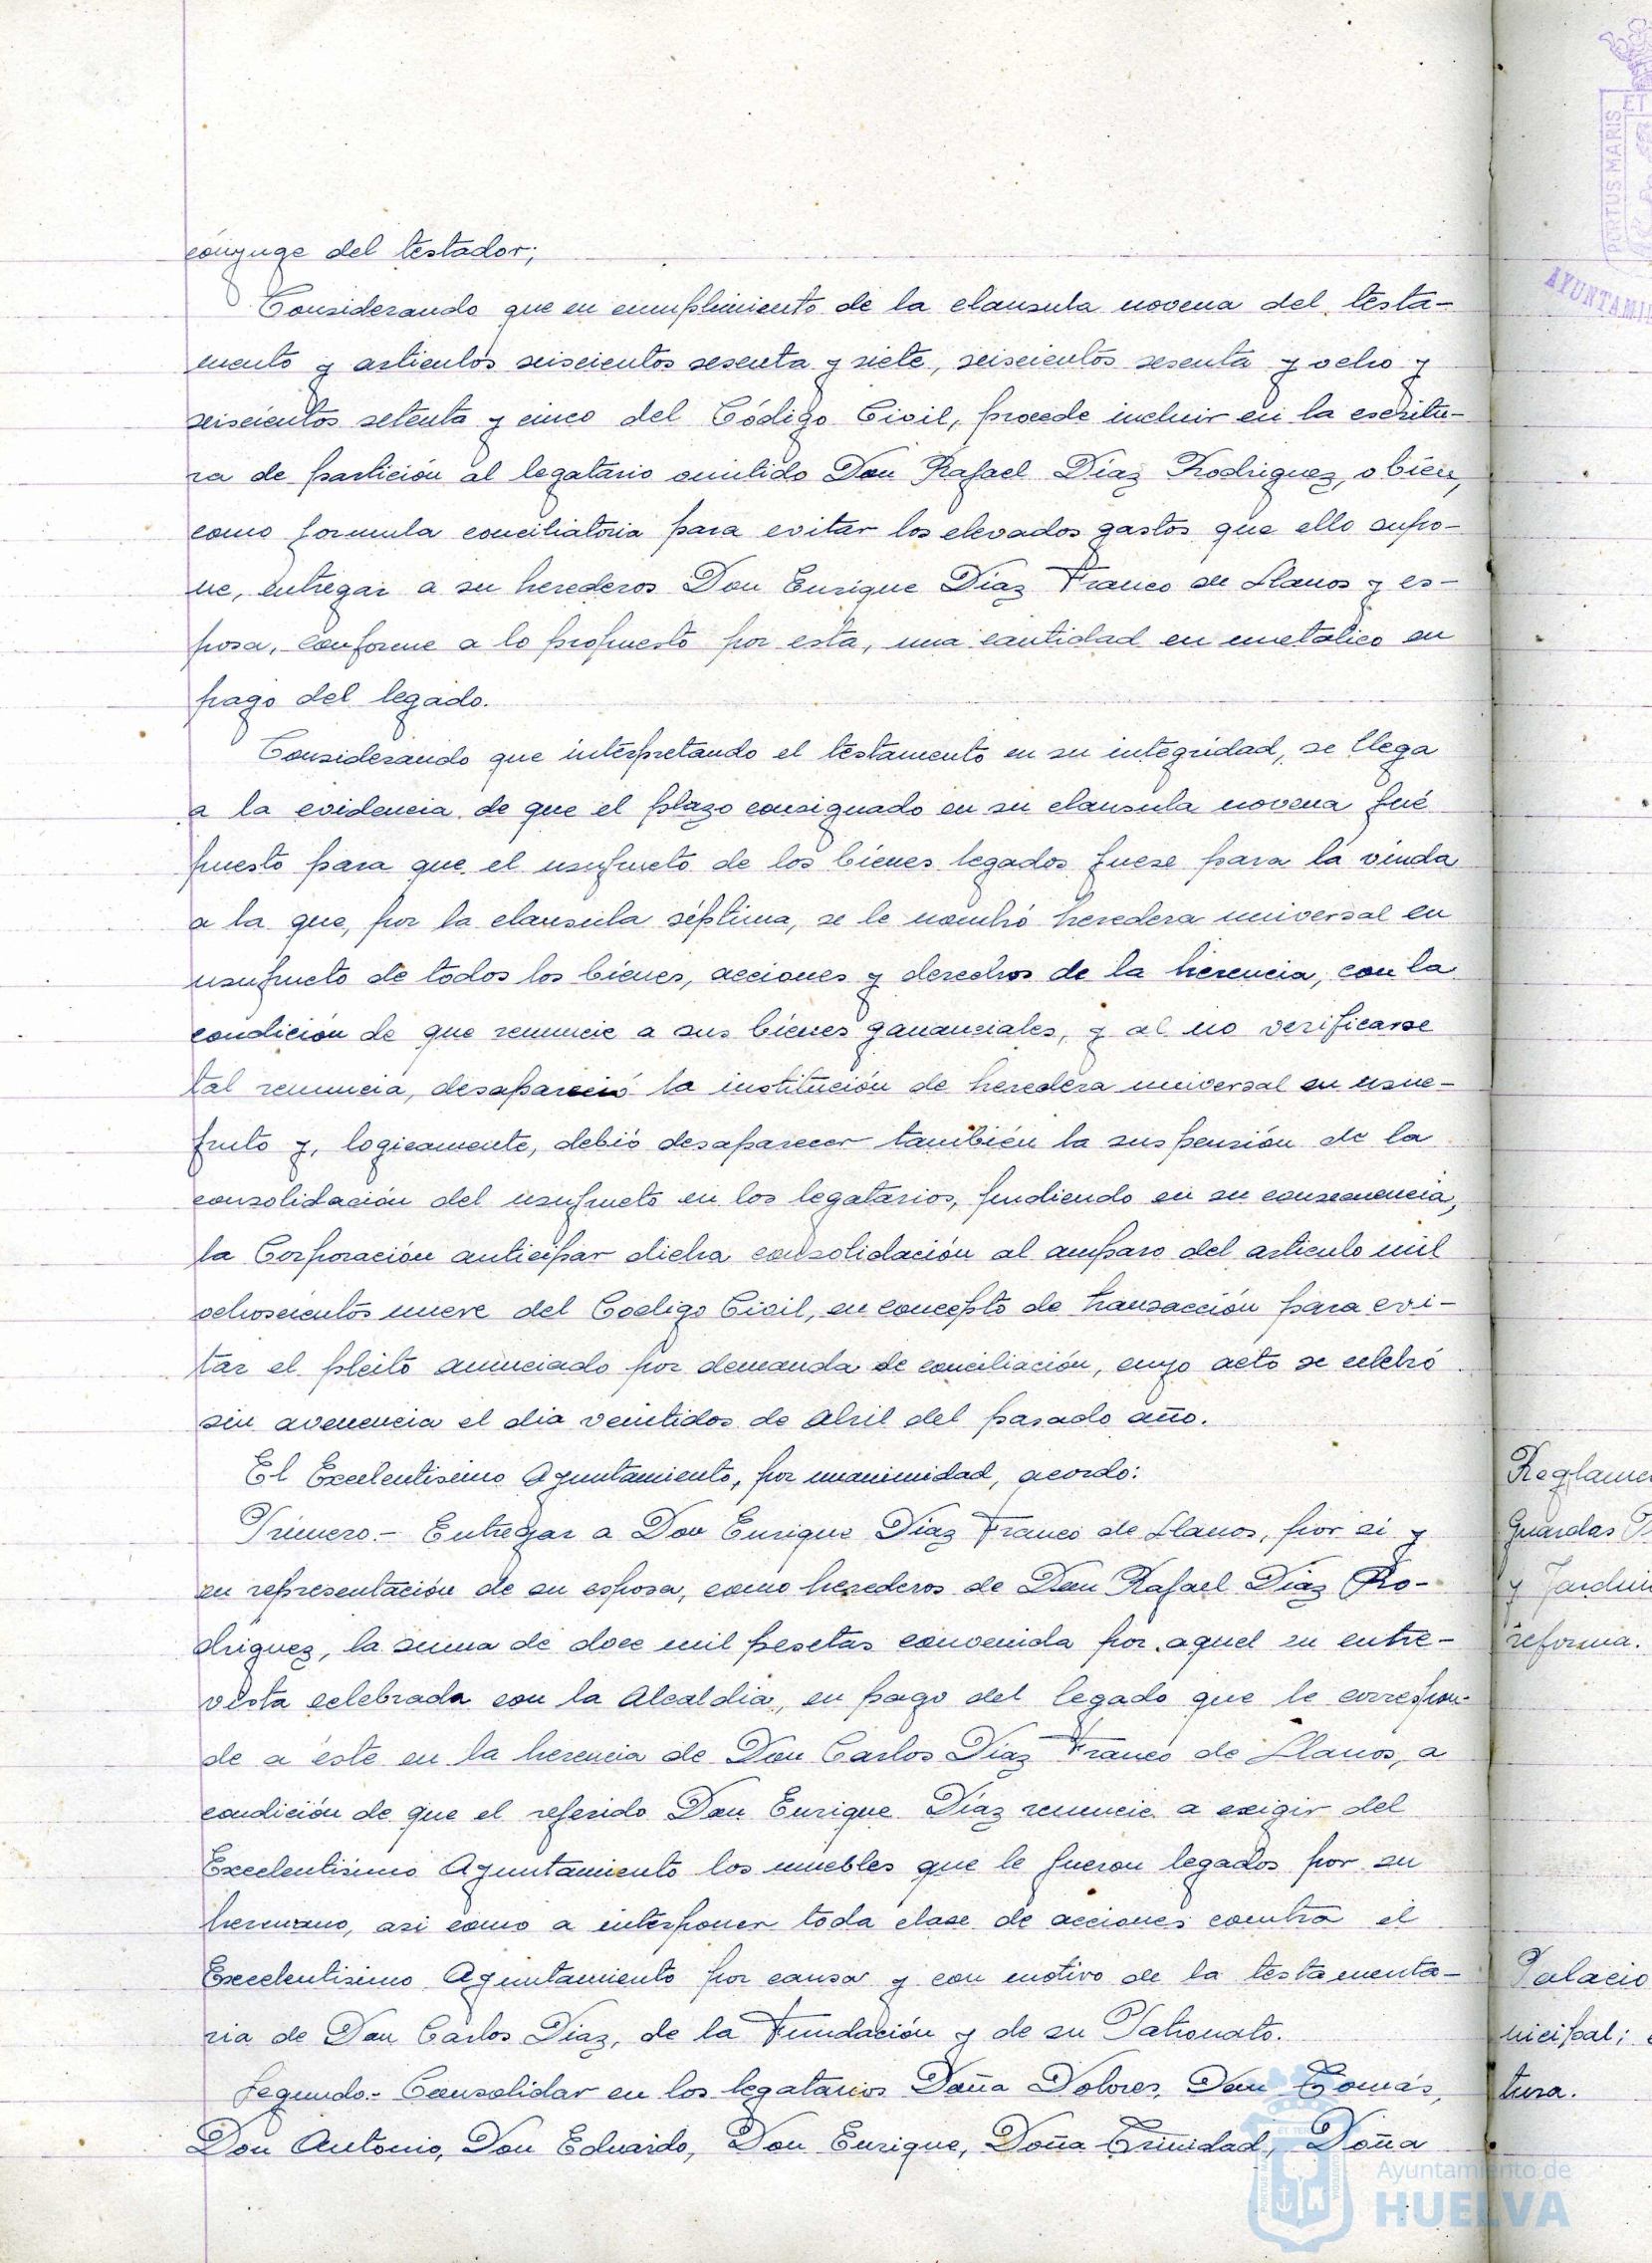 cónyuge del testador;
Considerando que en cumplimiento de la clausula novena del testa-
mento y articulos seiscientos sesenta y siete, seiscientos sesenta y ocho y
seiscientos setenta y cinco del Código Civil, procede incluir en la escritu-
ra de partición al legatario omitido Don Rafael Díaz Rodriguez, o bien,
como formula conciliatoria para evitar los elevados gastos que ello supo-
ne, entregar a su herederos Don Enrique Díaz Franco de Llanos y es-
posa, conforme a lo propuesto por esta, una cantidad en metalico en
pago del legado.
Considerando que interpretando el testamento en su integridad, se llega
a la evidencia de que el plazo consignado en su clausula novena fué
puesto para que el usufructo de los bienes legados fuese para la viuda
a la que, por la clausula séptima, se le nombró heredera universal en
usufructo de todos los bienes, acciones y derechos de la herencia, con la
condición de que renuncie a sus bienes gananciales, y al no verificarse
tal renuncia, desapareció la institución de heredera universal en usu-
fruto y, logicamente, debió desaparecer también la suspensión de la
consolidación del usufructo en los legatarios, pudiendo en su consecuencia,
la Corporación anticipar dicha consolidación al amparo del articulo mil
ochoscientos nueve del Codigo Civil, en concepto de transacción para evi-
tar el pleito anunciado por demanda de conciliación, cuyo acto se celebró
sin avenencia el dia veintidos de Abril del pasado año.
El Excelentisimo Ayuntamiento, por unanimidad, acordo:
Primero.- Entregar a Don Enrique Díaz Franco de Llanos, por si y
en representación de su esposa, como herederos de Don Rafael Díaz Ro-
driguez, la suma de doce mil pesetas convenida por aquel en entre-
vista celebrada con la Alcaldia, en pago del legado que le correspon-
de a éste en la herencia de Don Carlos Díaz Franco de Llanos, a
condición de que el referido Don Enrique Díaz renuncie a exigir del
Excelentisimo Ayuntamiento los muebles que le fueron legados por su
hermano, asi como a interponer toda clase de acciones contra el
Excelentisimo Ayuntamiento por causa y con motivo de la testamenta-
ria de Don Carlos Díaz, de la Fundación y de su Patronato.
Segundo.- Consolidar en los legatarios Doña Dolores, Don Tomás,
Don Antonio, Don Eduardo, Don Enrique, Doña Trinidad, Doña
Guardas
reforma.
Palacio
nicipal;
tura.
PORTUS MARIS
ET
Ayuntamiento de
HUELVA